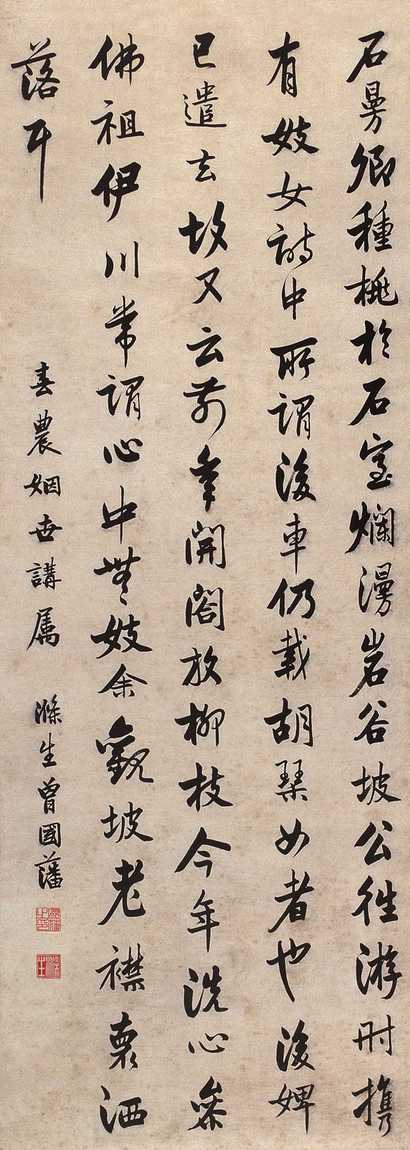 石曼卿種桃於石室爛漫岩谷坡公往游時攜
有妓女詩中所謂後車仍載胡琴女者也後婢
已遣去故又云前年開閤放柳枝今年洗心參
佛祖伊川常謂心中無妓余觀坡老襟褱洒
落耳
春農姻世講屬 滌生曾國藩